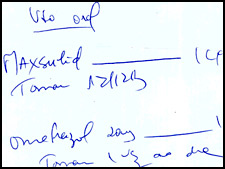 Uso oral
Maxsulid ——— 1 cx
Tomar 12/12h
Omeprazol 20mg ——— 1
Tomar 1 vz ao dia